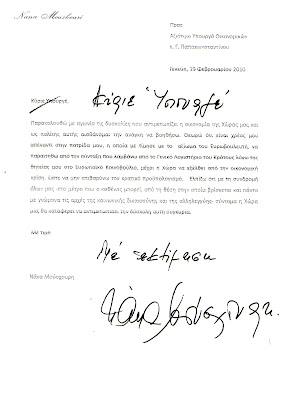 Nana Mouskouri
Προς
Αξιότιμο Υπουργό Οικονομικών
κ. Γ. Παπακωνσταντίνου
Γενεύη, 19 Φεβρουαρίου 2010
Κύριε Υπουργέ,
Κύριε Υπουργέ
Παρακολουθώ με αγωνία τις δυσκολίες που αντιμετωπίζει η οικονομία της Χώρας μας και
ως πολίτης αυτής αισθάνομαι την ανάγκη να βοηθήσω. Θεωρώ ότι είναι χρέος μου
απέναντι στην πατρίδα μου, η οποία με τίμησε με το αξίωμα του Ευρωβουλευτή, να
παραιτηθώ από την σύνταξη που λαμβάνω από το Γενικό Λογιστήριο του Κράτους λόγω της
θητείας μου στο Ευρωπαϊκό Κοινοβούλιο, μέχρι η Χώρα να εξέλθει από την οικονομική
κρίση, ώστε να μην επιβαρύνω τον κρατικό προϋπολογισμό. Ελπίζω ότι με τη συνδρομή
όλων μας -στο μέτρο που ο καθένας μπορεί, από τη θέση στην οποία βρίσκεται και πάντα
με γνώμονα τις αρχές της κοινωνικής δικαιοσύνης και της αλληλεγγύης- σύντομα η Χώρα
μας θα καταφέρει να αντιμετωπίσει την δύσκολη αυτή συγκυρία.
Με τιμή
Με εκτίμηση
Νάνα Μούσχουρη
Νάνα Μούσχουρη.